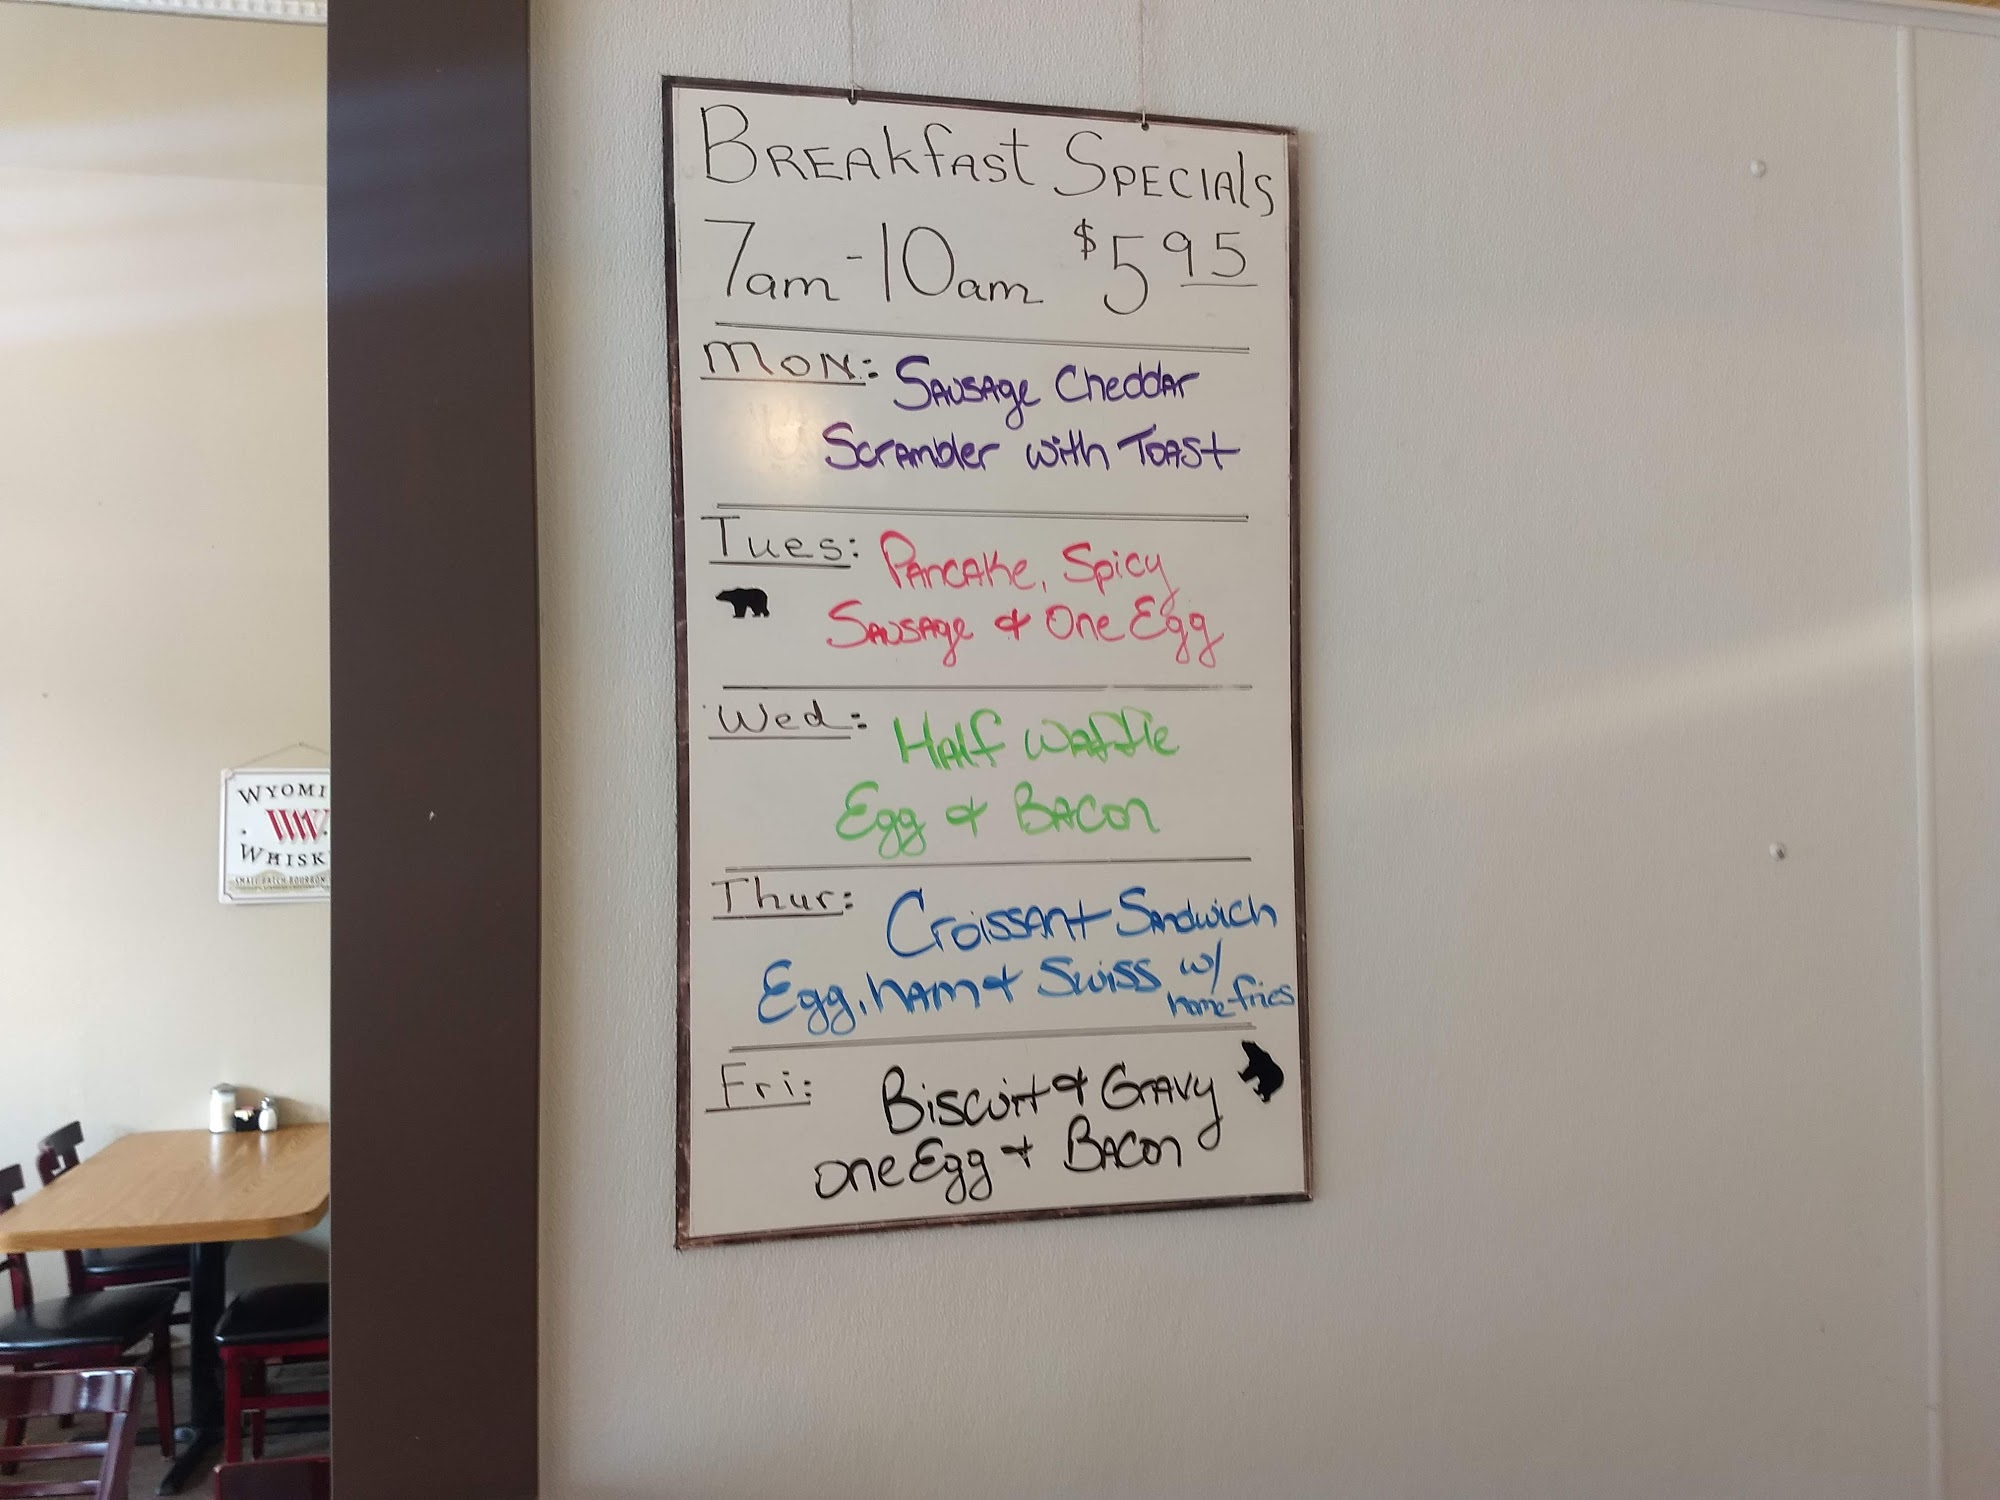 Breakfast Specials
7am-10am $5 95
Mon: Sausage Cheddar
Scrambler with Toast
Tues: Pancake, Spicy
Sausage & One Egg
Wed: Half Waffle
Egg & Bacon
Thur: Croissant Sandwich
Egg, ham & Swiss w/
home fries
Fri: Biscuit & Gravy
one Egg & Bacon
WYOMI
WW
WHISK
SMALL BATCH BOURBON